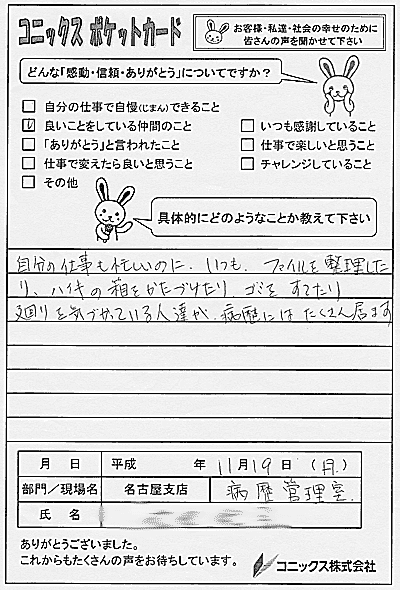 コニックス ポケットカード
お客様・私達・社会の幸せのために
皆さんの声を聞かせて下さい
どんな「感動・信頼・ありがとう」についてですか？
自分の仕事で自慢(じまん)できること
良いことをしている仲間のこと
いつも感謝していること
「ありがとう」と言われたこと
仕事で楽しいと思うこと
仕事で変えたら良いと思うこと
チャレンジしていること
その他
具体的にどのようなことか教えて下さい
自分の仕事も忙しいのに、いつも、ファイルを整理した
り、ハイキの箱をかたづけたり、ゴミをすてたり
廻りを気づかっている人達が、病歴にはたくさん居ます
月 日 平成 年 11月19日 (月)
部門／現場名 名古屋支店 病歴管理室
氏 名
ありがとうございました。
これからもたくさんの声をお待ちしています。
コニックス株式会社